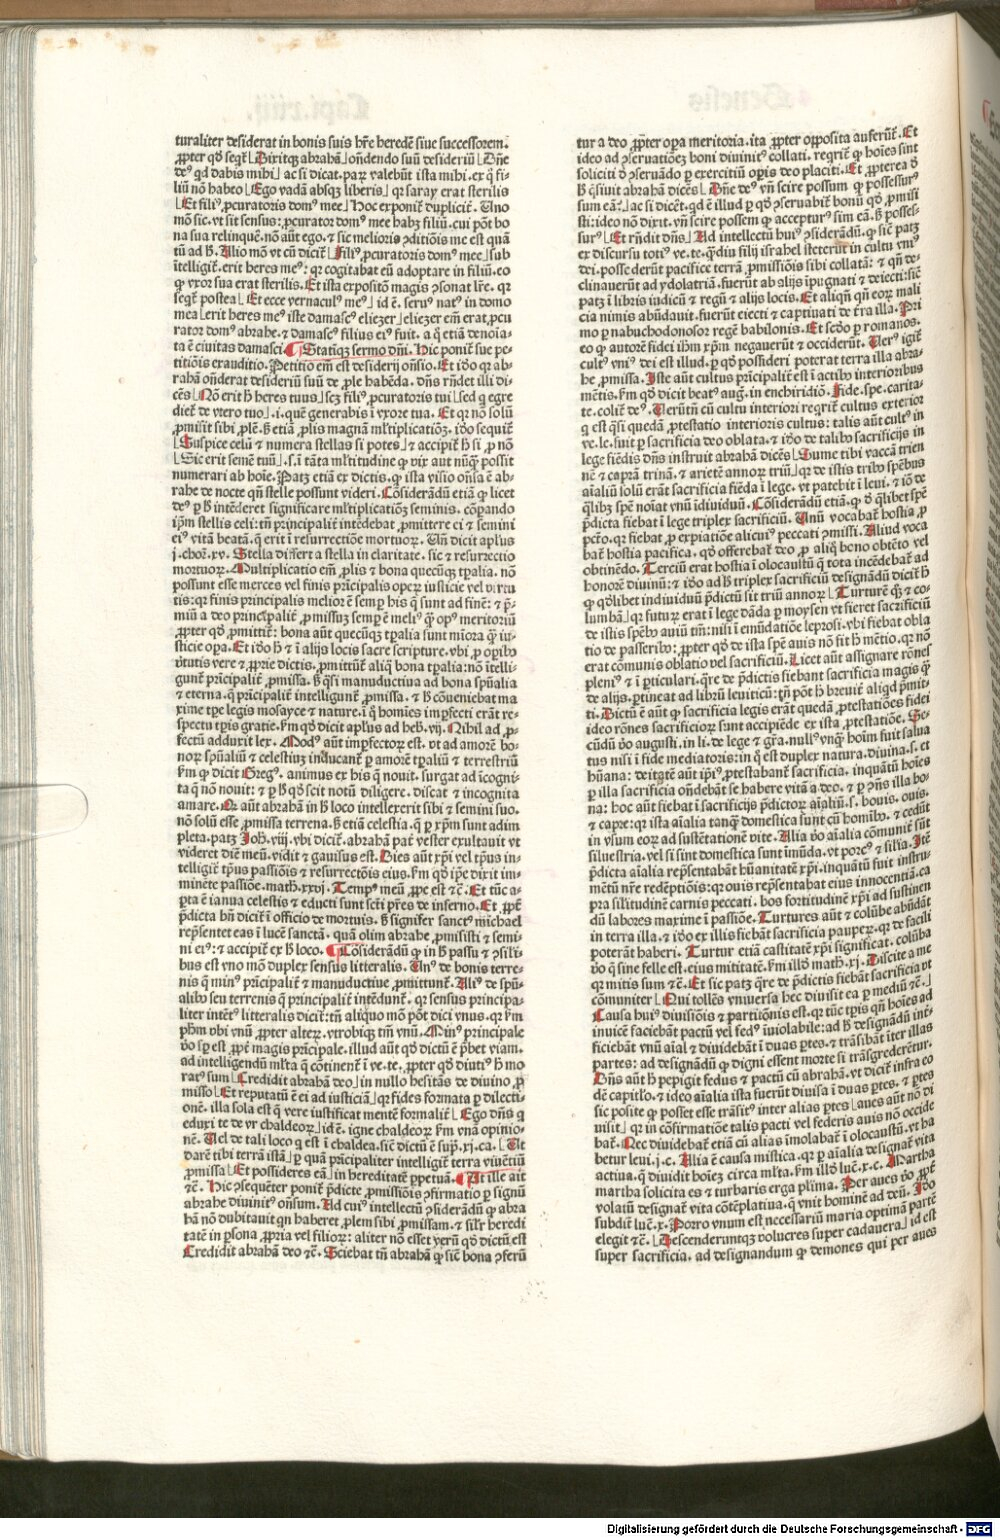 turaliter desiderat in bonis suis hr̄e heredē siue successorem.
ꝓpter qd̓ seqr̄ Dixitqꝫ abrahā oñdendo suū desideriū Dn̄e
de⁹ qd dabis mihi ac si dicat. paꝝ valebūt ista mihi. ex ꝙ fi-
liū nō habeo Ego vadā absqꝫ liberis qꝛ saray erat sterilis
Et fili⁹ ꝓcuratoris dom⁹ mee Hoc exponit̄ duplicit̄. Uno
mō sic. vt sit sensus: ꝓcurator dom⁹ mee habꝫ filiū. cui pōt bo
na sua relinquē. nō aūt ego. ⁊ sic melioris ꝯditiōis me est quā
tū ad h̓. Alio mō vt cū dicit̄ Fili⁹ ꝓcuratoris dom⁹ mee sub
ītelligit̄. erit heres me⁹: qꝛ cogitabat eū adoptare in filiū. eo
ꝙ vxor sua erat sterilis. Et ista expositō magis ꝯsonat lr̄e. qꝛ
seqr̄ postea Et ecce vernacul⁹ me⁹ id ē. seru⁹ nat⁹ in domo
mea erit heres me⁹ iste damasc⁹ eliezer eliezer em̄ erat ꝓcu
rator dom⁹ abrahe. ⁊ damasc⁹ filius ei⁹ fuit. a q̄ etiā denoīa-
ta ē ciuitas damasci. Statiqꝫ sermo dn̄i. Hic ponit̄ sue pe-
titiōis exauditio. Petitio em̄ est desiderij on̄sio. Et īdo qꝛ ab-
rahā on̄derat desideriū suū de ꝓle habēda. dn̄s rn̄det illi di-
cēs Nō erit h̓ heres tuus scꝫ fili⁹ ꝓcuratoris tui sed q̄ egre
diet̄ de vtero tuo .i. quē generabis ī vxore tua. Et qꝛ nō solū
ꝓmisit sibi ꝓlē. s̓ etiā ꝓlis magnā ml̓tiplicatiōꝫ. īdo sequit̄
Suspice celū ⁊ numera stellas si potes ⁊ accipit̄ h̓ si ꝓ nō
Sic erit semē tuū .s. ī tāta ml̓titudine ꝙ vix aut nūqꝫ possit
numerari ab hoīe. Patꝫ etiā ex dictis. ꝙ ista visio on̄sa ē ab-
rahe de nocte qn̄ stelle possunt videri. Cōsiderādū etiā ꝙ licet
de⁹ ꝑ h̓ intēderet significare ml̓tiplicatiōꝫ seminis. cōpando
ip̄m stellis celi: tn̄ principalit̄ intēdebat ꝓmittere ei ⁊ semini
ei⁹ vitā beatā. q̄ erit ī resurrectiōe mortuoꝝ. Un̄ dicit apl̓us
j.choꝝ.xv. Stella differt a stella in claritate. sic ⁊ resurrectio
mortuoꝝ. Multiplicatio em̄ ꝓlis ⁊ bona quecūqꝫ tꝑalia. nō
possunt esse merces vel finis prīcipalis opeꝝ iusticie vel virtu
tis: qꝛ finis principalis melior ē semꝑ his q̄ sunt ad finē: ⁊ p̄-
miū a deo principalit̄ ꝓmissuꝫ semꝑ ē meli⁹ ꝙ op⁹ meritoriū
ꝓpter qd̓ ꝓmittit̄: bona aūt quecūqꝫ tꝑalia sunt miōra ꝙ iu-
sticie oꝑa. Et īdo h̓ ⁊ ī alijs locis sacre scripture. vbi ꝓ oꝑibꝰ
v̓tutis vere ⁊ ꝓprie dictis. ꝓmittūt̄ aliq̄ bona tꝑalia: nō ītelli-
gunt̄ prīcipalit̄ ꝓmissa. s̓ q̄si manuductiua ad bona spūalia
⁊ eterna. q̄ prīcipalit̄ intelligunt̄ ꝓmissa. ⁊ h̓ cōueniebat ma
xime tꝑe legis mosayce ⁊ nature. ī q̄ homīes imꝑfecti erāt re-
spectu tꝑis gratie. fm qd̓ dicit apl̓us ad heb.vij. Nihil ad ꝑ-
fectū adduxit lex. Mod⁹ aūt imꝑfectoꝝ est. vt ad amorē bo-
noꝝ spūaliū ⁊ celestiuꝫ inducant̄ ꝑ amorē tꝑaliū ⁊ terrestriū
fm ꝙ dicit Greg⁹. animus ex his q̄ nouit. surgat ad īcogni-
ta q̄ nō nouit: ⁊ ꝑ h̓ qd̓ scit notū diligere. discat ⁊ incognita
amare. Qꝛ aūt abrahā in h̓ loco intellexerit sibi ⁊ semini suo.
nō solū esse ꝓmissa terrena. s̓ etiā celestia. q̄ ꝑ xp̄m sunt adim
pleta. patꝫ Joh̄.viij. vbi dicit̄. abrahā pat̄ vester exultauit vt
videret diē meū. vidit ⁊ gauisus est. Dies aūt xp̄i vel tp̄us in-
telligit̄ tp̄us passiōis ⁊ resurrectōis eius. fm qd̓ ip̄e dixit im-
minēte passiōe. math̄.xxvj. Temp⁹ meū ꝓpe est ⁊c̄. Et tūc a-
pta ē ianua celestis ⁊ educti sunt scti pr̄es de inferno. Et ꝓpt̄
p̄dicta bn̄ dicit̄ ī officio de mortuis. s̓ signifer sanct⁹ michael
repn̄tet eas ī lucē sanctā. quā olim abrahe ꝓmisisti ⁊ semi-
ni ei⁹: ⁊ accipit̄ ex h̓ loco. Cōsiderādū ꝙ in h̓ passu ⁊ ꝯsili-
bus est vno mō duplex sensus litteralis. Un⁹ de bonis terre-
nis q̄ min⁹ prīcipalit̄ ⁊ manuductiue ꝓmittunt̄. Ali⁹ de spū-
alibꝰ seu terrenis q̄ principalit̄ intēdunt̄. qꝛ sensus principa-
liter intēt⁹ litteralis dicit̄: tn̄ aliquo mō pōt dici vnus. qꝛ fm
ph̄m vbi vnū ꝓpter alteꝝ. vtrobiqꝫ tm̄ vnū. Min⁹ principale
v̓o sꝑ est ꝓpt̄ magis prīcipale. illud aūt qd̓ dictū ē p̄bet viam.
ad intelligendū ml̓ta q̄ cōtinent̄ ī ve.te. ꝓpter qd̓ diuti⁹ h̓ mo
rat⁹ sum Credidit abrahā deo in nullo hesitās de diuino ꝓ
misso Et reputatū ē ei ad iusticiā qꝛ fides formata ꝑ dilecti-
onē. illa sola est q̄ vere iustificat mentē formalit̄ Ego dn̄s q̄
eduxi te de vr chaldeoꝝ id ē. igne chaldeoꝝ fm vnā opinio-
nē. Uel de tali loco q̄ est ī chaldea. sic̄ dictū ē sup̄.xj.ca. Ut
darē tibi terrā istā ꝑ quā prīcipaliter intelligit̄ terra viuētiū
ꝓmissa Et possideres eā in hereditatē ꝑpetuā. At ille ait
⁊c̄. Hic ꝯsequēter ponit̄ p̄dicte ꝓmissiōis ꝯfirmatio ꝑ signū
abrahe diuinit⁹ on̄sum. Ad cui⁹ intellectū ꝯsiderādū ꝙ abra
hā nō dubitauit qn haberet ꝓlem sibi ꝓmissam. ⁊ sil̓r heredi
tatē in ꝑsona ꝓpria vel filioꝝ: aliter nō esset verū qd̓ dictū est
Credidit abrahā deo ⁊c̄. Sciebat tn̄ abrahā ꝙ sic̄ bona ꝯferū
tur a deo ꝓpter oꝑa meritoria. ita ꝓpter opposita auferūt̄. Et
ideo ad ꝯseruatiōeꝫ boni diuinit⁹ collati. reqrit̄ ꝙ hoīes sint
soliciti d̓ ꝯseruādo ꝑ exercitiū oꝑis deo placiti. Et ꝓpterea d̓
h̓ q̄siuit abrahā dicēs Dn̄e de⁹ vn̄ scire possum ꝙ possessur⁹
sum eā: ac si dicēt. qd ē illud ꝑ qd̓ ꝯseruabit̄ bonū qd̓ ꝓmisi
sti: ideo nō dixit. vn̄ scire possem ꝙ accepturꝰ sim eā. s̓ posses-
sur⁹ Et rn̄dit dn̄s Ad intellectū hui⁹ ꝯsiderādū. ꝙ sic̄ patꝫ
ex discursu toti⁹ ve.te. q̄diu filij israhel steterūt in cultu vni⁹
dei. possederūt pacifice terrā ꝓmissiōis sibi collatā: ⁊ qn̄ de-
clinauerūt ad ydolatriā. fuerūt ab alijs īpugnati ⁊ deiecti: sic̄
patꝫ ī libris iudicū ⁊ regū ⁊ alijs locis. Et aliqn̄ qn̄ eoꝝ mali
cia nimis abūdauit. fuerūt eiecti ⁊ captiuati de tr̄a illa. Pri
mo ꝑ nabuchodonosor regē babilonis. Et scd̓o ꝑ romanos.
eo ꝙ autorē fidei ihm̄ xp̄m negauerūt ⁊ occiderūt. Uer⁹ igit̄
cult⁹ vni⁹ dei est illud. ꝑ qd̓ possideri poterat terra illa abra-
he ꝓmissa. Iste aūt cultus prīcipalit̄ est ī actibꝰ interioribus
mētis. fm qd̓ dicit beat⁹ aug⁹. in enchiridiō. Fide. spe. carita-
te. colit̄ de⁹. Uerūtn̄ cū cultu interiori reqrit̄ cultus exterior
q̄ est q̄si quedā ꝓtestatio interioris cultus: talis aūt cult⁹ in
ve.le. fuit ꝑ sacrificia deo oblata. ⁊ īdo de talibꝰ sacrificijs in
lege fiēdis dn̄s instruit abrahā dicēs Sume tibi vaccā trien
nē ⁊ caprā trinā. ⁊ arietē annoꝝ triū qꝛ de istis tribꝰ spēbus
aīaliū solū erāt sacrificia fiēda ī lege. vt patebit ī leui. ⁊ iō de
q̄libꝫ spē noīat vnū īdiuiduū. Cōsiderādū etiā. ꝙ d̓ q̄libet spē
p̄dicta fiebat ī lege triplex sacrificiū. Unū vocabat̄ hostia ꝓ
pctō. qꝛ fiebat ꝓ expiatiōe alicui⁹ peccati ꝯmissi. Aliud voca
bat̄ hostia pacifica. qd̓ offerebat̄ deo ꝓ aliq̄ bono obtēto vel
obtinēdo. Terciū erat hostia ī olocaustū q̄ tota incēdebat̄ ad
honorē diuinū: ⁊ īdo ad h̓ triplex sacrificiū designādū dicit̄ h̓
ꝙ qd̓libet indiuiduū p̄dictū sit triū annoꝝ Turturē qꝫ ⁊ co-
lumbā qꝛ futuꝝ erat ī lege dāda ꝑ moysen vt fieret sacrificiū
de istis spēbꝰ auiū tm̄: nisi ī emūdatiōe leprosi. vbi fiebat obla
tio de passeribꝰ: ꝓpter qd̓ de ista spē auis nō fit h̓ mētio. qꝛ nō
erat cōmunis oblatio vel sacrificiū. Licet aūt assignare rōnes
pleni⁹ ⁊ ī ꝑticulari. qre de p̄dictis fiebant sacrificia magis ꝙ
de alijs. ꝑtineat ad librū leuiticū: tn̄ pōt h̓ breuit̄ aliqd p̄mit-
ti. Dictū ē aūt ꝙ sacrificia legis erāt quedā ꝓtestatiōes fidei
ideo rōnes sacrificioꝝ sunt accipiēde ex ista ꝓtestatiōe. Se-
cūdū v̓o augusti. in li. de lege ⁊ gr̄a. null⁹ vnqꝫ hoīm fuit salua
tus nisi ī fide mediatoris: in q̄ est duplex natura. diuina .s. et
hūana: deitatē aūt ip̄i⁹ ꝓtestabant̄ sacrificia. inquātū hoīes
ꝑ illa sacrificia on̄debāt se habere vitā a deo. ⁊ ꝑ ꝯn̄s illa bo-
na: hoc aūt fiebat ī sacrificijs p̄dictoꝝ aīaliū .s. bouis. ouis.
⁊ capre: qꝛ ista aīalia tanqꝫ domestica sunt cū homībꝰ. ⁊ cedūt
in vsum eoꝝ ad sustētationē vite. Alia v̓o aīalia cōmunit̄ sūt
siluestria. vel si sint domestica sunt īmūda. vt porc⁹ ⁊ silia. Itē
p̄dicta aīalia repn̄tabāt hūanitatē xp̄i. inquātū fuit instru-
mētū nr̄e redēptiōis: qꝛ ouis repn̄tabat eius innocentiā. ca
pra similitudinē carnis peccati. bos fortitudinē xp̄i ad sustinen
dū labores maxime ī passiōe. Turtures aūt ⁊ colūbe abūdāt
in terra illa. ⁊ īdo ex illis fiebāt sacrificia pauperꝝ. qꝛ de facili
poterāt haberi. Turtur etiā castitatē xp̄i significat. colūba
v̓o q̄ sine felle est. eius mititatē. fm illd̓ math̄.xj. Discite a me
qꝛ mitis sum ⁊c̄. Et sic patꝫ q̄re de p̄dictis fiebāt sacrificia vt
cōmuniter Qui tollēs vniuersa hec diuisit ea ꝑ mediū ⁊c̄.
Causa hui⁹ diuisiōis ⁊ partitiōnis est. qꝛ tūc tꝑis qn̄ hoīes ad
inuicē faciebāt pactū vel fed⁹ īuiolabile: ad h̓ designādū int̄-
ficiebāt vnū aīal ⁊ diuidebāt ī duas ꝑtes. ⁊ trāsibāt iter illas
partes: ad designādū ꝙ digni essent morte si trāsgrederēt̄ur.
Dn̄s aūt h̓ pepigit fedus ⁊ pactū cū abrahā. vt dicit̄ infra eo
dē capitl̓o. ⁊ ideo aīalia ista fuerūt diuisa ī duas ꝑtes. ⁊ ꝑtes
sic posite ꝙ posset esse trāsit⁹ inter alias ꝑtes aues aūt nō di
uisit qꝛ in cōfirmatiōe talis pacti vel federis auis nō occide
bat̄. Nec diuidebat̄ etiā cū alias īmolabat̄ ī olocaustū. vt ha
betur leui.j.c. Alia ē causa mistica. qꝛ ꝑ aīalia designat̄ vita
actiua. q̄ diuidit hoīeꝫ circa ml̓ta. fm illd̓ luc̄.x.c. Martha
martha solicita es ⁊ turbaris erga plima. Per aues v̓o ꝓpt̄
volatū designat̄ vita cōtēplatiua. q̄ vnit hominē ad deū. Iō
subdit̄ luc̄.x. Porro vnum est necessariū maria optimā partē
elegit ⁊c̄. Descenderuntqꝫ volucres super cadauera id est
super sacrificia. ad designandum ꝙ demones qui per aues